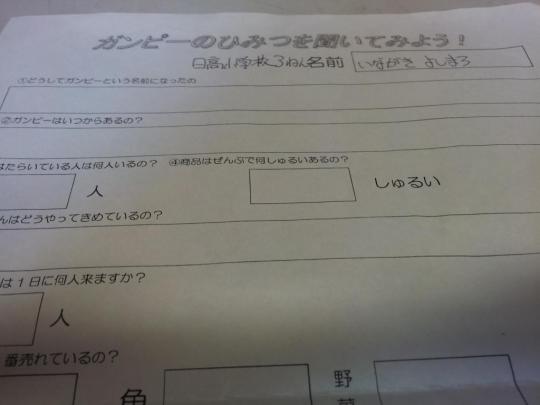 ガンピーのひみつを聞いてみよう!
日高小学校3ねん名前 いながき よしまろ
①どうしてガンピーという名前になったの
②ガンピーはいつからあるの?
はたらいている人は何人いるの? ④商品はぜんぶで何しゅるいあるの?
人 しゅるい
んはどうやってきめているの?
は1日に何人来ますか?
人
番売れているの?
魚 野菜